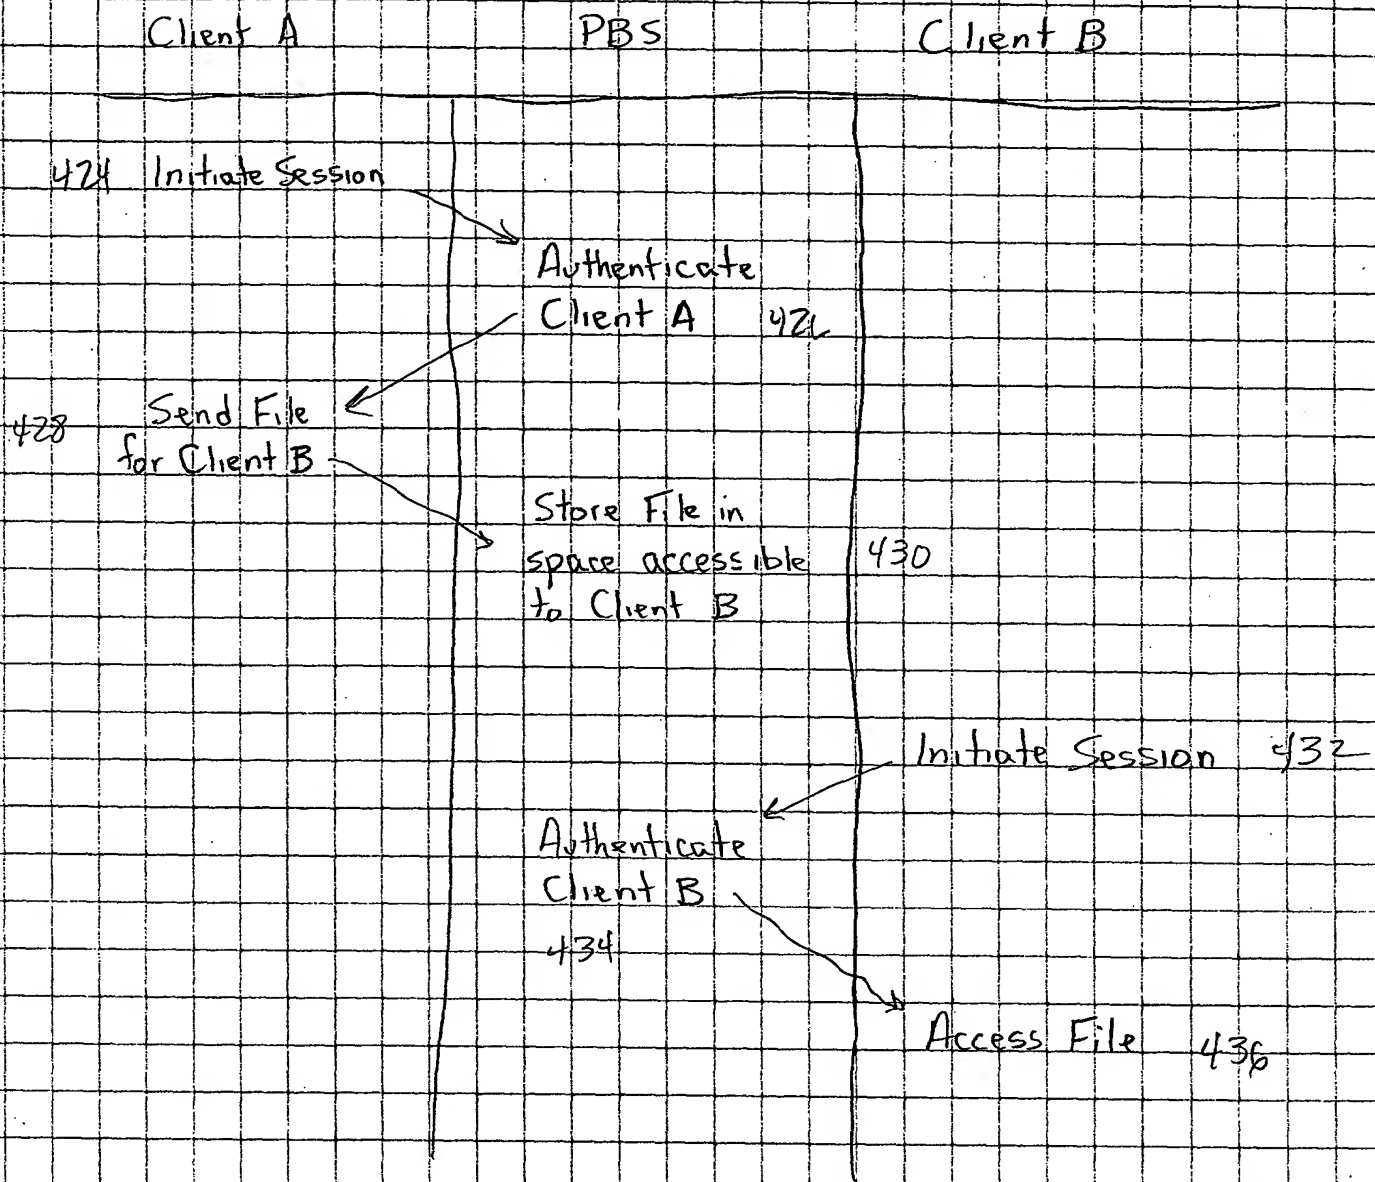 Client A PBS Client B
424 Initiate Session
Authenticate
Client A 426
Send File
428
for Client B
Store File in
space accessible 430
to Client B
Initiate Session 432
Authenticate
Client B
434
Access File 436